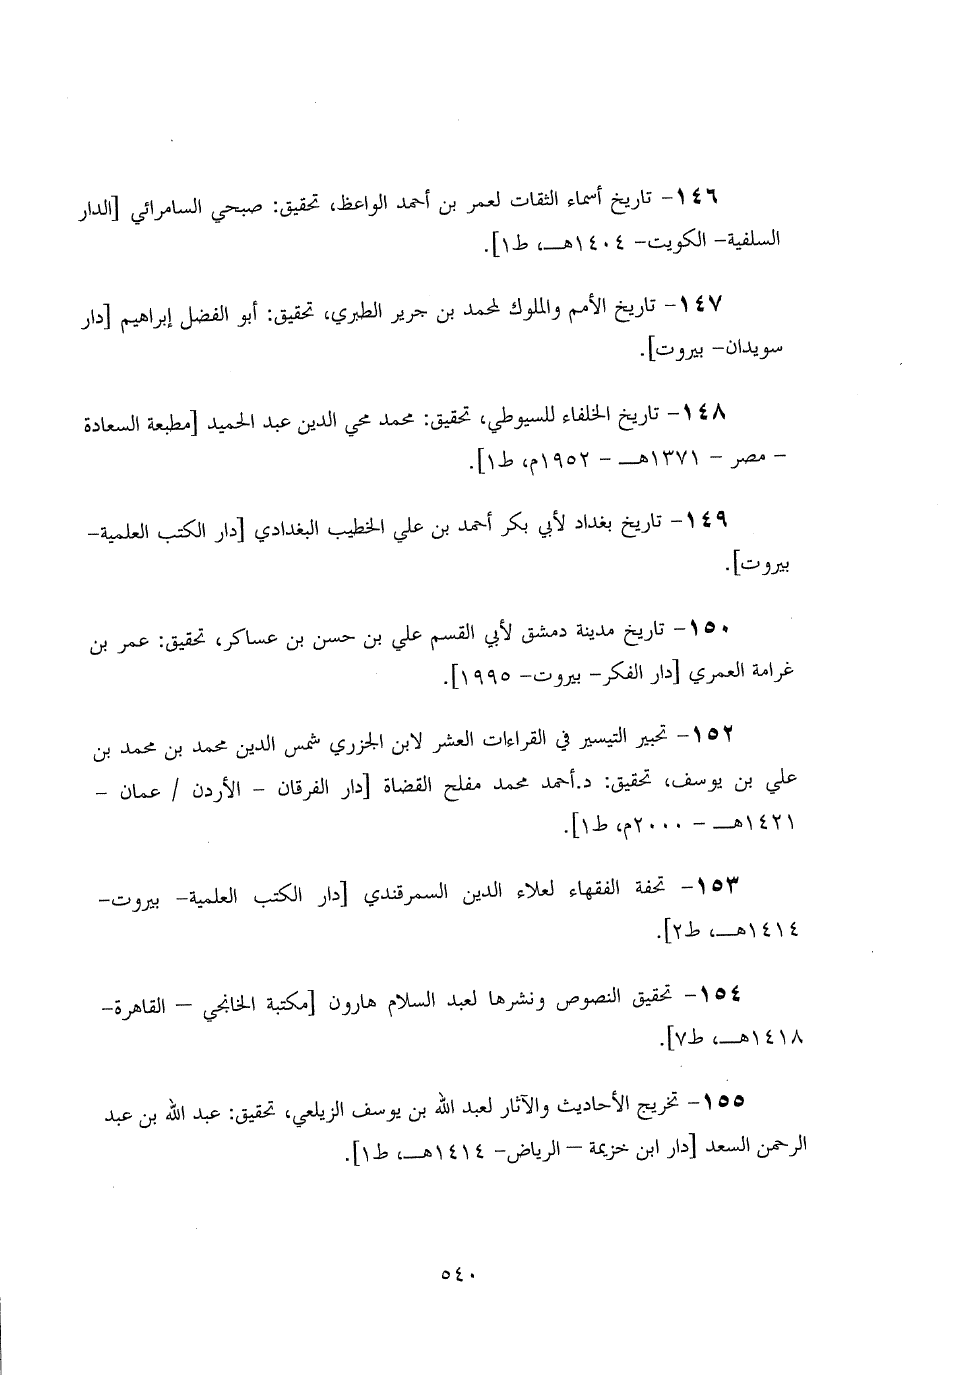 ١٤٦- تاريخ أسماء الثقات لعمر بن أحمد الواعظ، تحقيق: صبحي السامرائي [الدار
السلفية- الكويت- ١٤٠٤هـ، ط١].
١٤٧- تاريخ الأمم والملوك لمحمد بن جرير الطبري، تحقيق: أبو الفضل إبراهيم [دار
سويدان- بيروت].
١٤٨- تاريخ الخلفاء للسيوطي، تحقيق: محمد محي الدين عبد الحميد [مطبعة السعادة
- مصر - ١٣٧١هـ - ١٩٥٢م، ط١].
١٤٩- تاريخ بغداد لأبي بكر أحمد بن علي الخطيب البغدادي [دار الكتب العلمية-
بيروت].
١٥٠- تاريخ مدينة دمشق لأبي القسم علي بن حسن بن عساكر، تحقيق: عمر بن
غرامة العمري [دار الفكر- بيروت- ١٩٩٥].
١٥٢- تحبير التيسير في القراءات العشر لابن الجزري شمس الدين محمد بن محمد بن
علي بن يوسف، تحقيق: د.أحمد محمد مفلح القضاة [دار الفرقان - الأردن / عمان -
١٤٢١هـ - ٢٠٠٠م، ط١].
١٥٣- تحفة الفقهاء لعلاء الدين السمرقندي [دار الكتب العلمية- بيروت-
١٤١٤هـ، ط٢].
١٥٤- تحقيق النصوص ونشرها لعبد السلام هارون [مكتبة الخانجي – القاهرة-
١٤١٨هـ، ط٧].
١٥٥- تخريج الأحاديث والآثار لعبد الله بن يوسف الزيلعي، تحقيق: عبد الله بن عبد
الرحمن السعد [دار ابن خزيمة – الرياض- ١٤١٤هـ، ط١].
٥٤٠